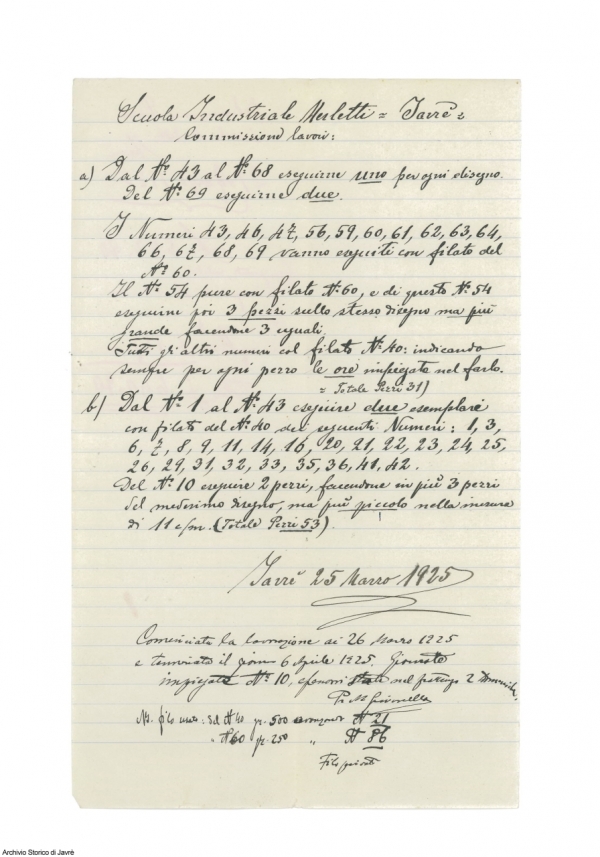 Scuola Industriale Merletti = Javrè =
Commissione lavori:
a) Dal Nº 43 al Nº 68 eseguirne uno per ogni disegno.
Del Nº 69 eseguirne due.
I Numeri 43, 46, 47, 56, 59, 60, 61, 62, 63, 64,
66, 67, 68, 69 vanno eseguiti con filato del
Nº 60.
Il Nº 54 pure con filato Nº 60, e di questo Nº 54
eseguirne poi 3 pezzi sullo stesso disegno ma più
grande facendone 3 eguali.
Tutti gli altri numeri col filato Nº 40: indicando
sempre per ogni pezzo le ore impiegate nel farlo.
= Totale Pezzi 31)
b) Dal Nº 1 al Nº 43 eseguire due esemplari
con filato del Nº 40 dei seguenti Numeri: 1, 3,
6, 7, 8, 9, 11, 14, 16, 20, 21, 22, 23, 24, 25,
26, 29, 31, 32, 33, 35, 36, 41, 42.
Del Nº 10 eseguire 2 pezzi, facendone in più 3 pezzi
del medesimo disegno, ma più piccolo nella misura
di 11 c/m. (Totale Pezzi 53)
Javrè 25 Marzo 1925
Cominciata la lavorazione ai 26 Marzo 1925
e terminata il giorno 6 Aprile 1925. Giornate
impiegate Nº 10, nel 2
Nº 40 gr. 500 21
Nº 60 gr. 250 " 86
Filo
Archivio Storico di Javrè